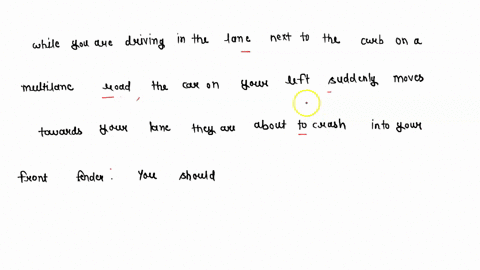 while you are driving in the lane next to the curb on a
multilane road, the car on your left suddenly moves
towards your lane they are about to crash into your
front fender: You should